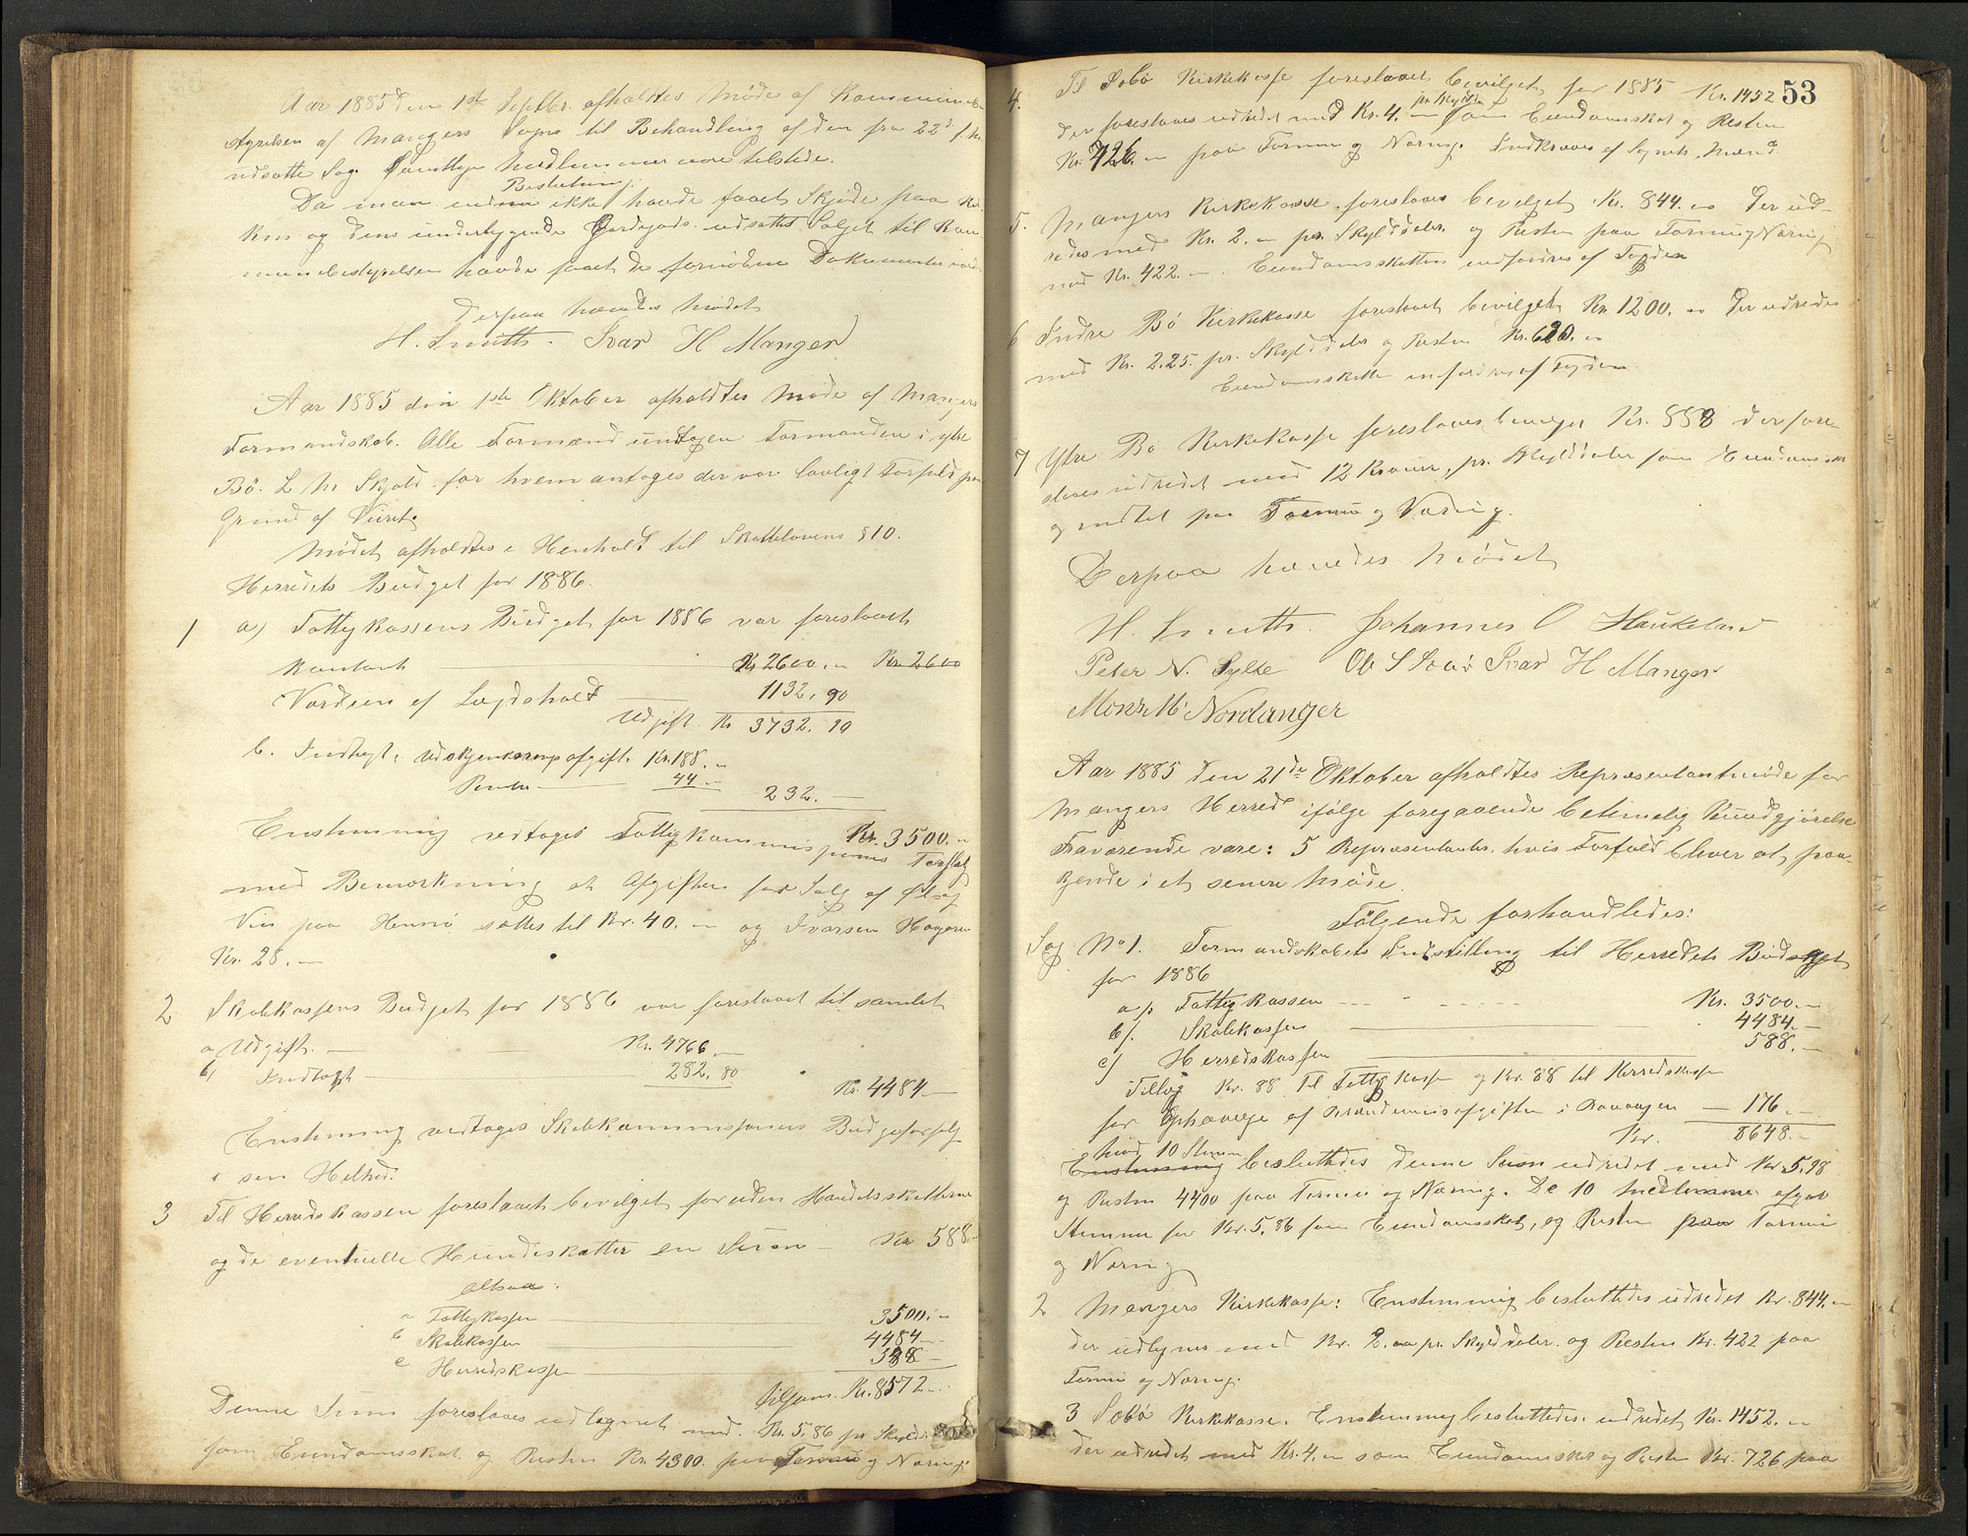 Aar 1885 den 1ste Septbr. afholdtes Møde af Kommunebe-
styrelsen af Mangers Sogn til Behandling af den fra 22de f. M.
udsatte Sag. Samtlige Medlemmer vare tilstede.
Bestutning
Da man endnu ikke havde faaet Skjøde paa
og dens underliggende Jordgods udsattes Salget til Kom-
munebestyrelsen havde faaet de fornødne Dokumenter
Derpaa hævedes Mødet
H. Smith. Ivar H Manger
Aar 1885 den 1ste Oktober afholdtes Møde af Mangers
Formandskab. Alle Formænd undtagen Formanden i ytre
Bø. L M Skjold for hvem antoges der var lovligt Forfald paa
Grund af Veiret.
Mødet afholdtes i Henhold til Skattelovens §10.
Herredets Budget for 1886.
1 a) Fattigkassens Budget for 1886 var foreslaaet
Kontant Kr 2600. „ Kr. 2600
Værdien af Lægdshold 1132, 90
Udgift Kr 3732. 90
b. Indtægt, Udskjenkningsafgift Kr. 188. „
Renter 44 „
232. —
Kr. 3500. „
Enstemmig vedtoges Fattigkommissionens Forslag
med Bemærkning at Afgiften for Salg af Øl og
Vin paa Hennø sættes til Kr. 40. „ og Ivarsen Hagenes
Kr. 28. —
2 Skolekassens Budget for 1886 var foreslaaet til samlet
a, Udgift. — Kr. 4766 „
b, Indtægt — 282, 80
Kr. 4484 —
Enstemmig vedtoges Skolekommissionens Budgetforslag
i sin Helhed.
3 Til Herredskassen foreslaaet bevilget foruden Handelsskatterne
og de eventuelle Hundeskatter en Sum — Kr 588 —
altsaa:
a Fattigkassen 3500. „
b Skolekassen 4484 —
c Herredskassen 588 —
tilsam. Kr. 8572 „
Denne Sum foreslaaes udlignet med Kr. 5,86 pr Skyldd.
som Eiendomsskat og Resten Kr. 4300. paa Formue og Næring.
53
4. Til Sæbø Kirkekasse foreslaaet bevilget for 1885 Kr. 1452
pr Skyldd
der foreslaaes udredet med Kr. 4. „ som Eiendomsskat og Resten
Kr. 726. „ paa Formue og Næring. Indkræves af Sogneb. Mænd
5. Mangers Kirkekasse foreslaaes bevilget Kr. 844. „ Der ud-
redes med Kr. 2. „ pr. Skylddaler og Resten paa Formue og Næring
med Kr. 422. „ Eiendomsskatten indfordres af Fogden
6 Indre Bø Kirkekasse foreslaaet bevilget Kr. 1200. „ Der udredes
med Kr. 2.25. pr. Skylddaler og Resten Kr. 620. „
Eiendomsskatten indfordres af Fogden
7 Ytre Bø Kirkekasse foreslaaes bevilget Kr. 558 der fore-
slaaes udredet med 12 Kroner, pr. Skylddaler som Eiendomssk
og resten paa Formue og Næring.
Derpaa hævedes Mødet
H. Smith. Johannes O Haukeland
Peter N. Sylte Ole S Sæbø Ivar H Manger
Mons M. Nordanger
Aar 1885 den 21de Oktober afholdtes Repræsentantmøde for
Mangers Herred ifølge foregaaende betimelig Kundgjørelse
Fraværende vare: 5 Repræsentanter, hvis Forfald bliver at paa-
kjende i et senere Møde.
Følgende forhandledes:
Sag No 1. Formandskabets Indstilling til Herredets Budget
for 1886
a/. Fattigkassen Kr. 3500. —
b/. Skolekassen 4484. —
c) Herredskassen 588. —
Tillæg Kr. 88 til Fattigkassen og Kr. 88 til Herredskassen
for Ophævelse af Brændevinsafgiften i — 176. —
Kr. 8648. —
mod 10 Stemmer
Enstemmig besluttedes denne Sum udredet med Kr 5,98
og Resten 4400 paa Formue og Næring. De 10 Medlemmer afgav
Stemme for Kr. 5,86 som Eiendomsskat, og Resten paa Formue
og Næring
2 Mangers Kirkekasse: Enstemmig besluttedes udredet Kr. 844. „
der udlignes med Kr. 2. „ pr. Skylddaler. og Resten Kr. 422 paa
Formue og Næring.
3 Sæbø Kirkekasse. Enstemmig besluttedes udredet Kr. 1452. „
der udredet med Kr. 4. „ som Eiendomsskat og Resten Kr. 726 paa